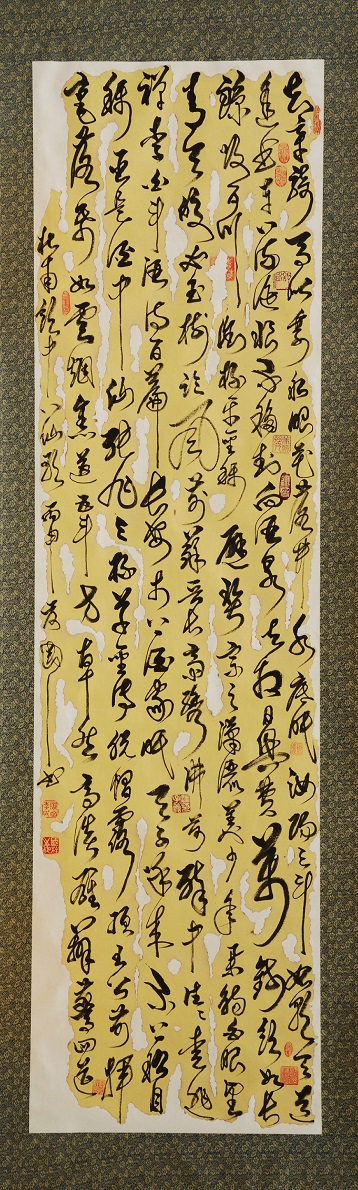 知章騎馬似乘船眼花落井水底眠汝陽三斗始朝天道
逢麴車口流涎恨不移封向酒泉左相日興費萬錢飲如長
鯨吸百川銜杯樂聖稱避賢宗之瀟灑美少年舉觴白眼望
青天皎如玉樹臨風前蘇晉長齋繡佛前醉中往往愛逃
禪李白斗酒詩百篇長安市上酒家眠天子呼來不上船自
稱臣是酒中仙張旭三杯草聖傳脫帽露頂王公前揮
毫落紙如雲煙焦遂五斗方卓然高談雄辯驚四筵
杜甫飲中八仙歌